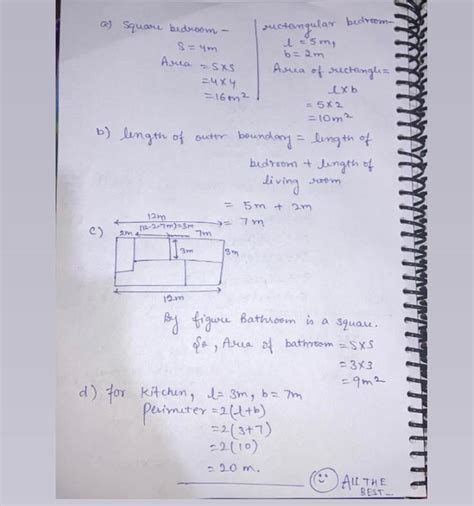 a) Square bedroom -
S = 4m
Area = S×S
= 4×4
= 16m²
rectangular bedroom-
l = 5m,
b = 2m
Area of rectangle =
l×b
= 5×2
= 10m²
b) length of outer boundary = length of
bedroom + length of
living room
= 5m + 2m
= 7m
c)
12m
2m (12-2-7m)=3m 7m
3m 3m
12m
By figure Bathroom is a square.
So, Area of bathroom = S×S
= 3×3
= 9m²
d) for kitchen, l = 3m, b = 7m
Perimeter = 2(l+b)
= 2(3+7)
= 2(10)
= 20 m.
ALL THE
BEST...